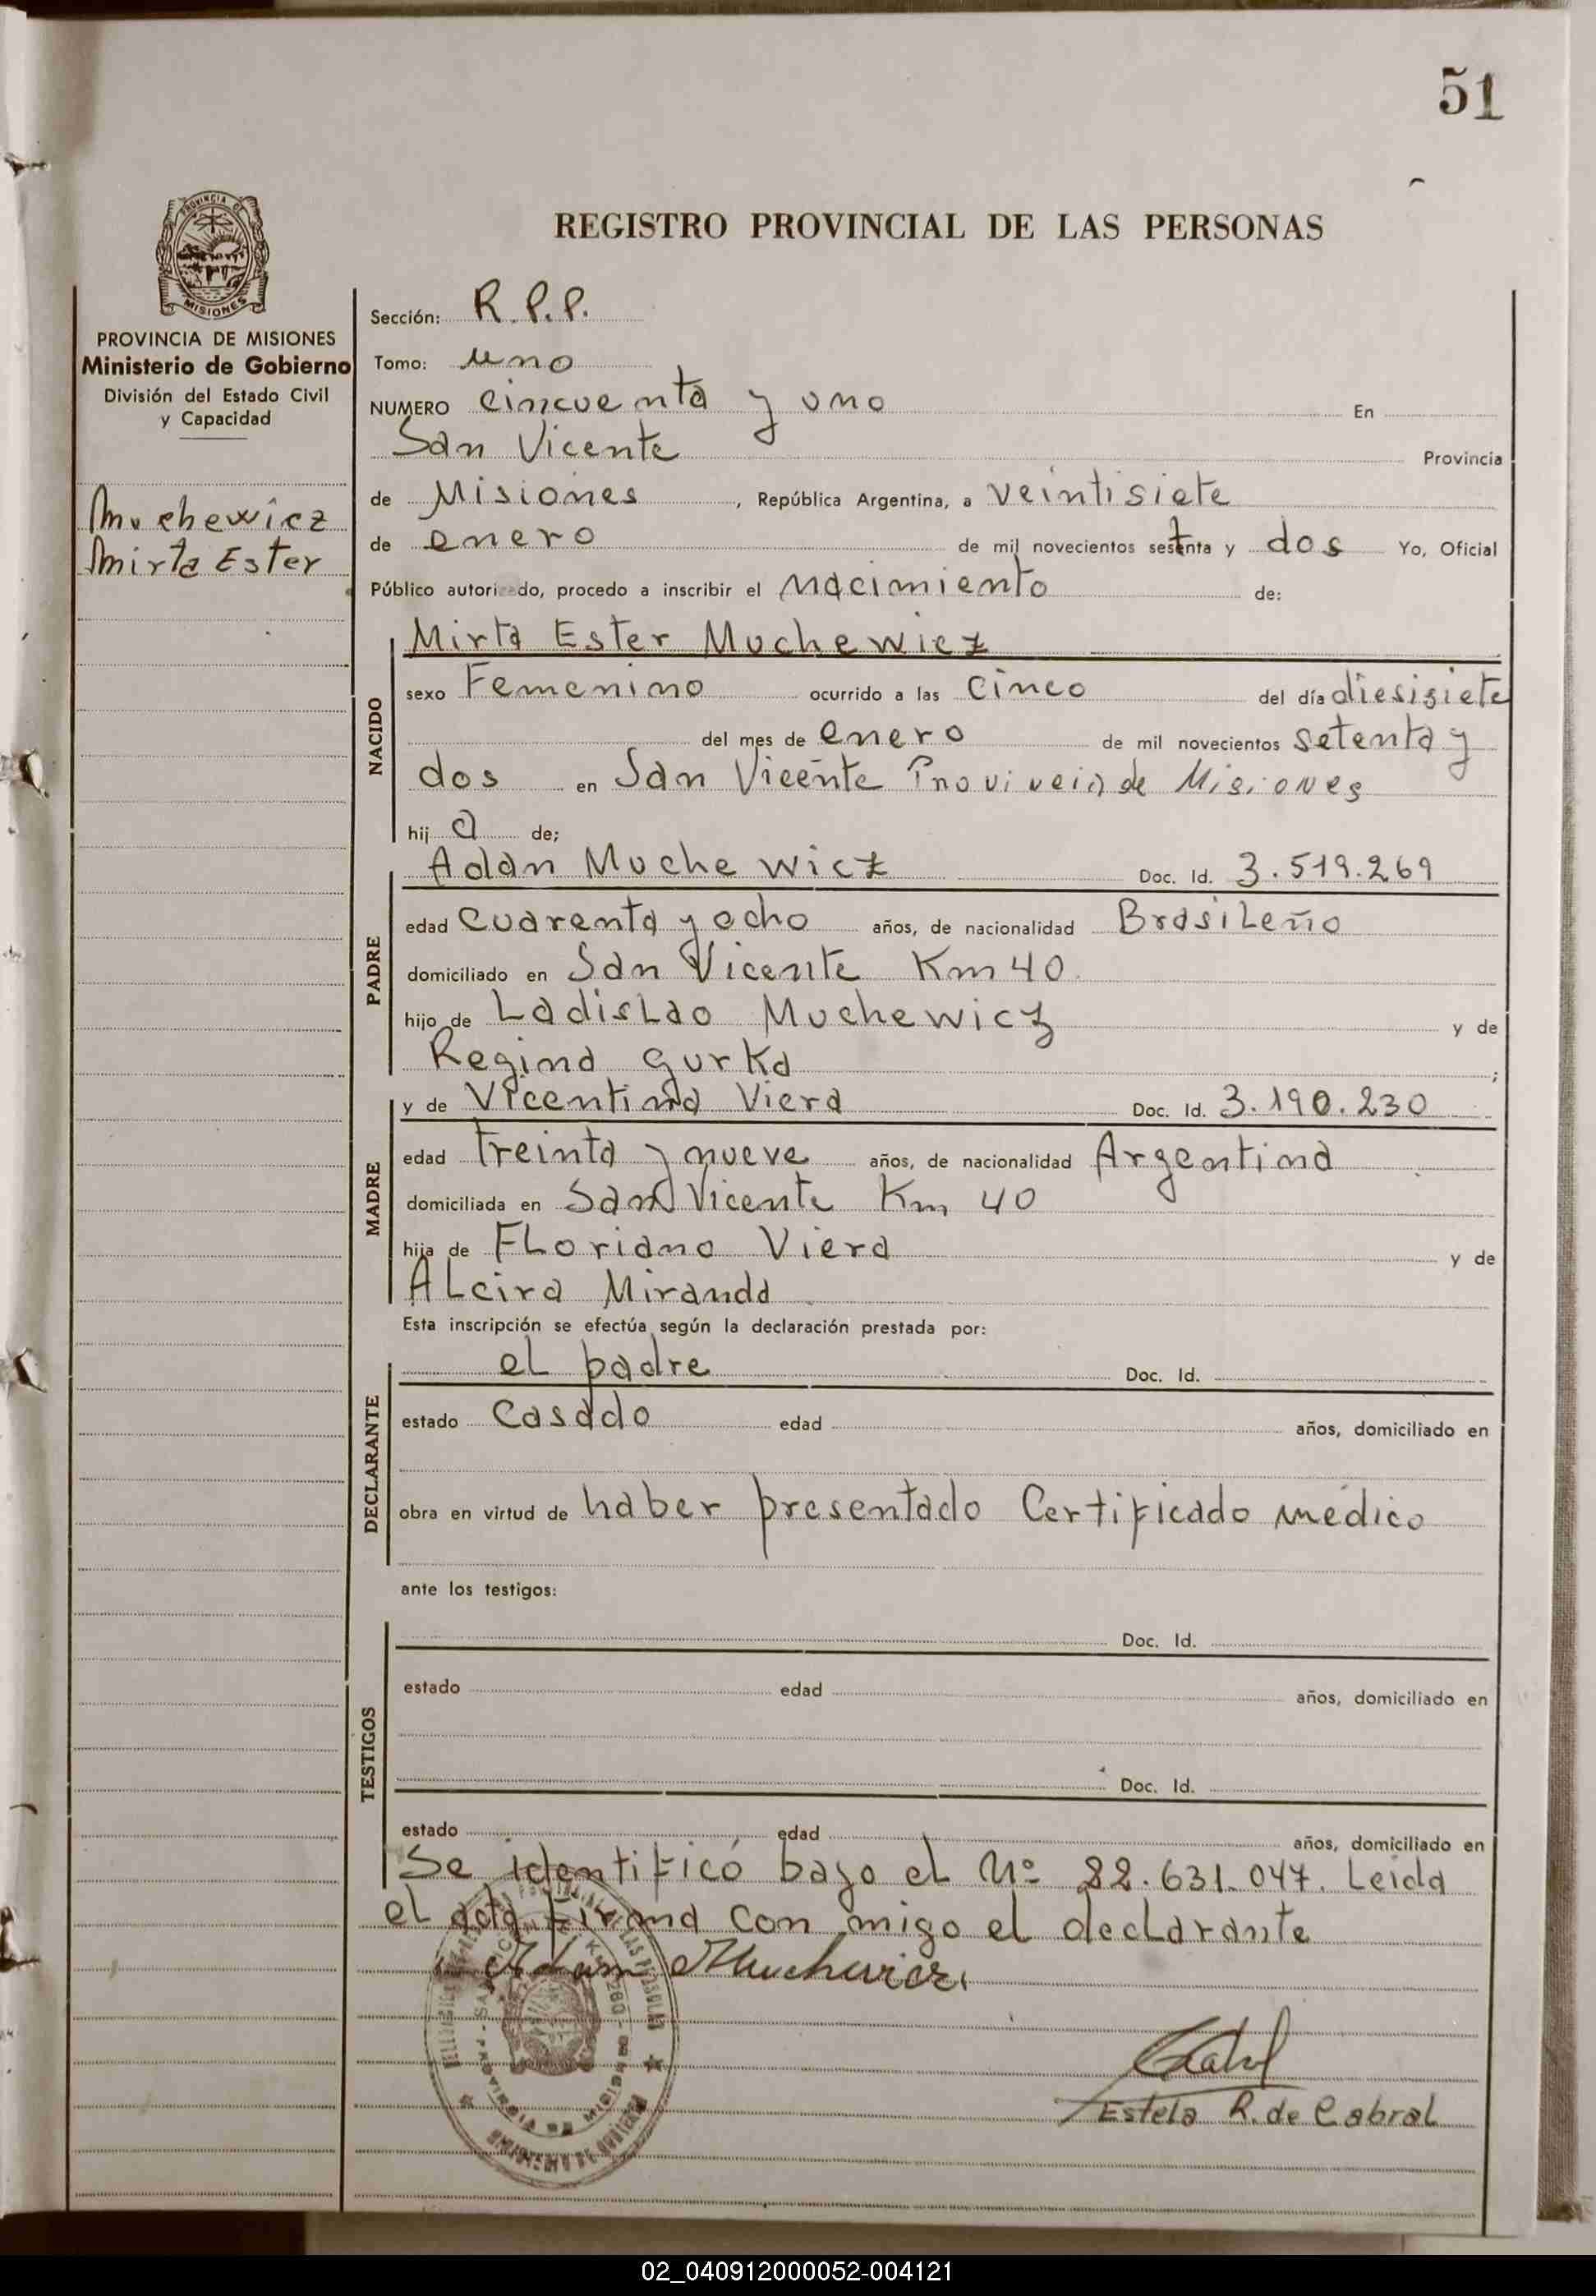 51
REGISTRO PROVINCIAL DE LAS PERSONAS
PROVINCIA DE
MISIONES
PROVINCIA DE MISIONES
Ministerio de Gobierno
División del Estado Civil
y Capacidad
Muchewicz
Mirta Ester
Sección: R.P.P.
Tomo: uno
NUMERO cincuenta y uno En
San Vicente Provincia
de Misiones, República Argentina, a veintisiete
de enero de mil novecientos setenta y dos Yo, Oficial
Público autorizado, procedo a inscribir el nacimiento de:
NACIDO
Mirta Ester Muchewicz
sexo Femenino ocurrido a las cinco del día diesisiete
del mes de enero de mil novecientos setenta y
dos en San Vicente Provincia de Misiones
hij a de;
PADRE
Adan Muchewicz Doc. Id. 3.519.269
edad cuarenta y ocho años, de nacionalidad Brasileño
domiciliado en San Vicente Km 40
hijo de Ladislao Muchewicz y de
Regina Gurka ;
MADRE
y de Vicentina Viera Doc. Id. 3.190.230
edad treinta y nueve años, de nacionalidad Argentina
domiciliada en San Vicente Km 40
hija de Floriano Viera y de
Alcira Miranda
Esta inscripción se efectúa según la declaración prestada por:
DECLARANTE
el padre Doc. Id.
estado Casado edad años, domiciliado en
obra en virtud de haber presentado Certificado médico
ante los testigos:
TESTIGOS
Doc. Id.
estado edad años, domiciliado en
Doc. Id.
estado edad años, domiciliado en
Se identificó bajo el Nº 22.631.047. Leida
el acta firma con migo el declarante
Adam Muchewicz
Estela R. de Cabral
PROVINCIA DE MISIONES
MINISTERIO DE GOBIERNO
02_040912000052-004121